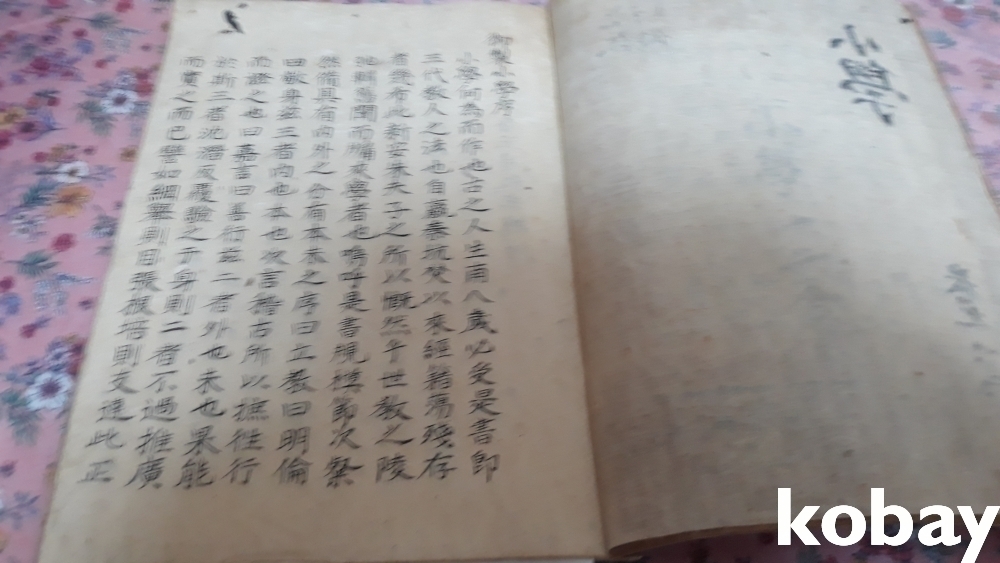 御製小學序
小學何爲而作也古之人生甫八歲必受是書即
三代敎人之法也自嬴秦坑焚以來經籍蕩殘存
者幾希此新安朱夫子之所以慨然乎世敎之陵
弛輯舊聞而牖來學者也嗚呼是書規模節次粲
然備具有內外之分有本末之序曰立敎曰明倫
曰敬身玆三者內也本也次言稽古所以摭往行
而證之也曰嘉言曰善行玆二者外也末也果能
於斯三者沈潛反覆驗之于身則二者不過推廣
而實之而已譬如綱擧則目張根培則支達此正
小
kobay